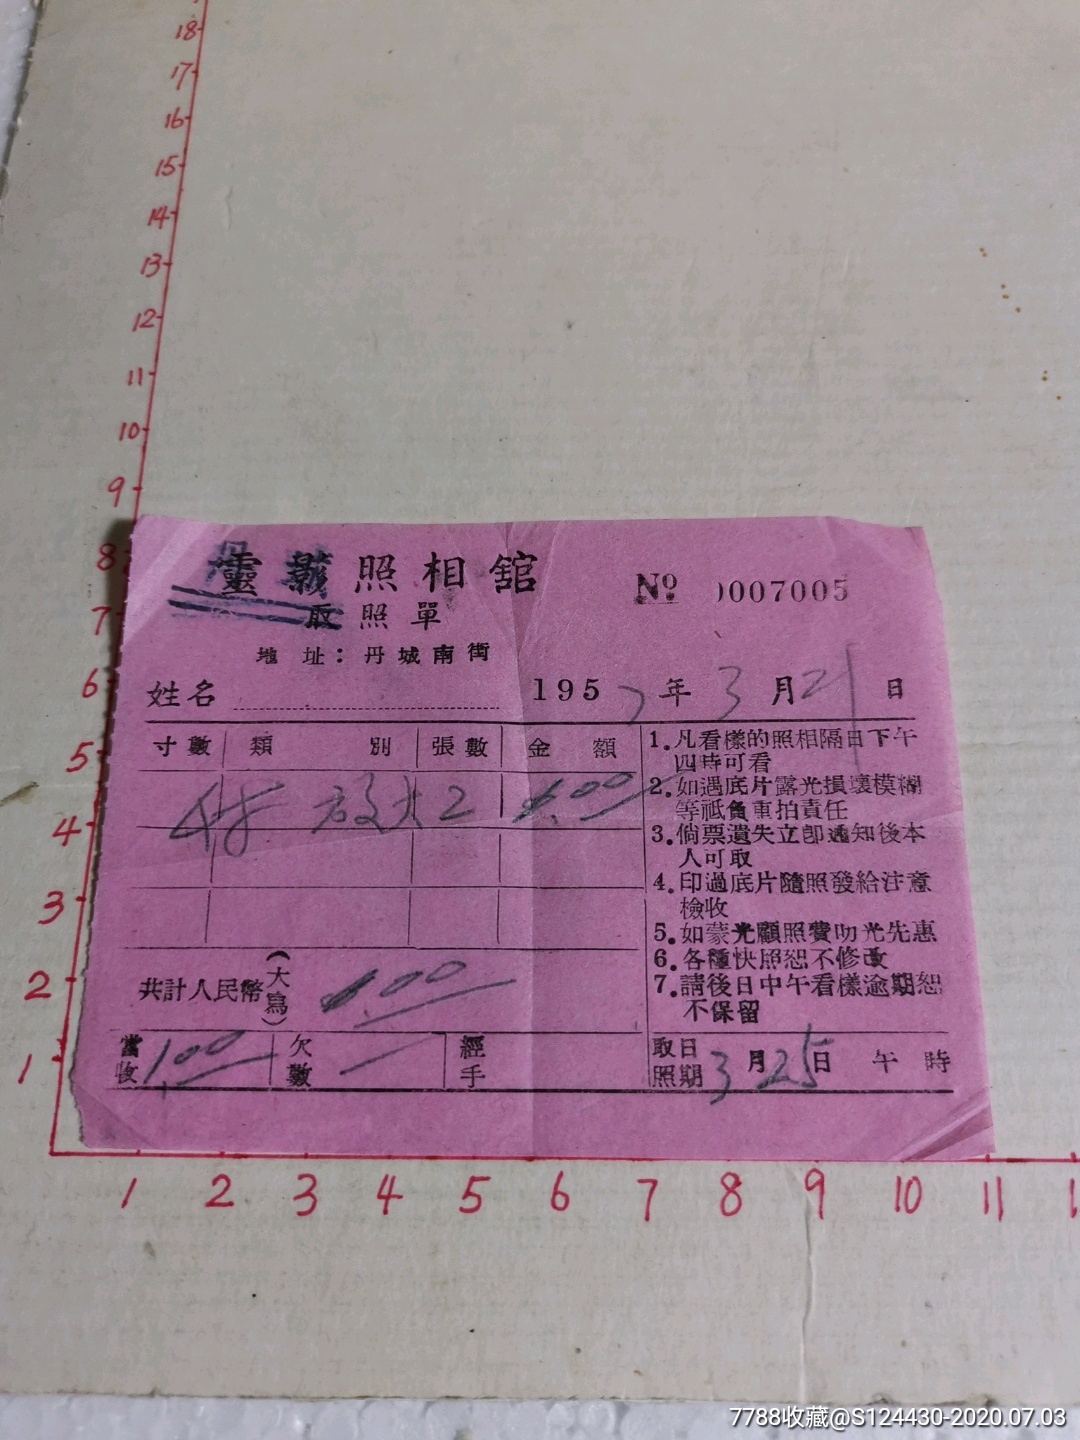 18
17
16
15
14
13
12
11
10
9
8
7
6
5
4
3
2
1
靈影照相館
取照單
地址：丹城南街
№ 0007005
姓名
1957年3月21日
寸數 類別 張數 金額
4寸 放大 2 1.00
共計人民幣（大寫） 1.00
當收 1.00 欠數 經手
1.凡看樣的照相隔日下午
四時可看
2.如遇底片露光損壞模糊
等祗負重拍責任
3.倘票遺失立卽通知後本
人可取
4.印過底片隨照發給注意
檢收
5.如蒙光顧照費叨光先惠
6.各種快照恕不修改
7.請後日中午看樣逾期恕
不保留
取照日期 3月25日 午 時
1 2 3 4 5 6 7 8 9 10 11 1
7788收藏@S124430-2020.07.03